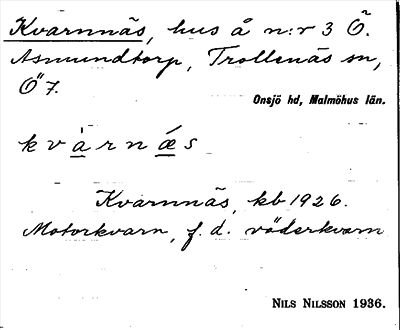 Kvarnnäs, hus å n:r 3 Ö.
Asmundtorp, Trollenäs sn,
Ö 7.
Onsjö hd, Malmöhus län.
k v à r n ǽ s
Kvarnnäs, kb 1926.
Motorkvarn, f. d. väderkvarn
NILS NILSSON 1936.